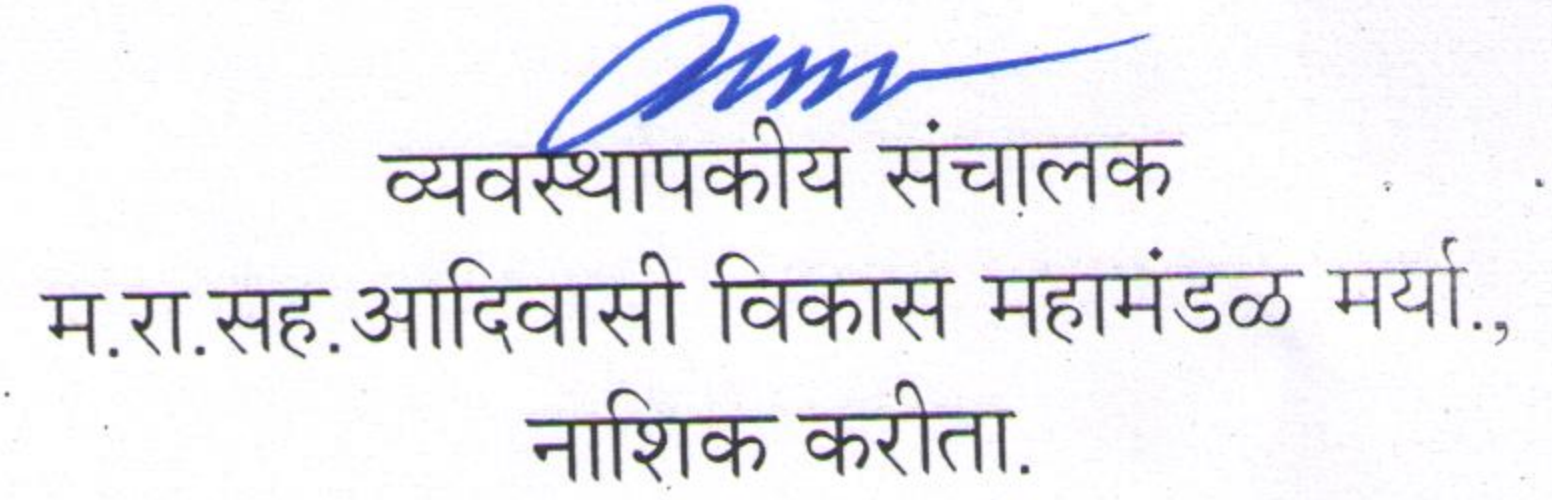 व्यवस्थापकीय संचालक
म.रा.सह.आदिवासी विकास महामंडळ मर्या.,
नाशिक करीता.